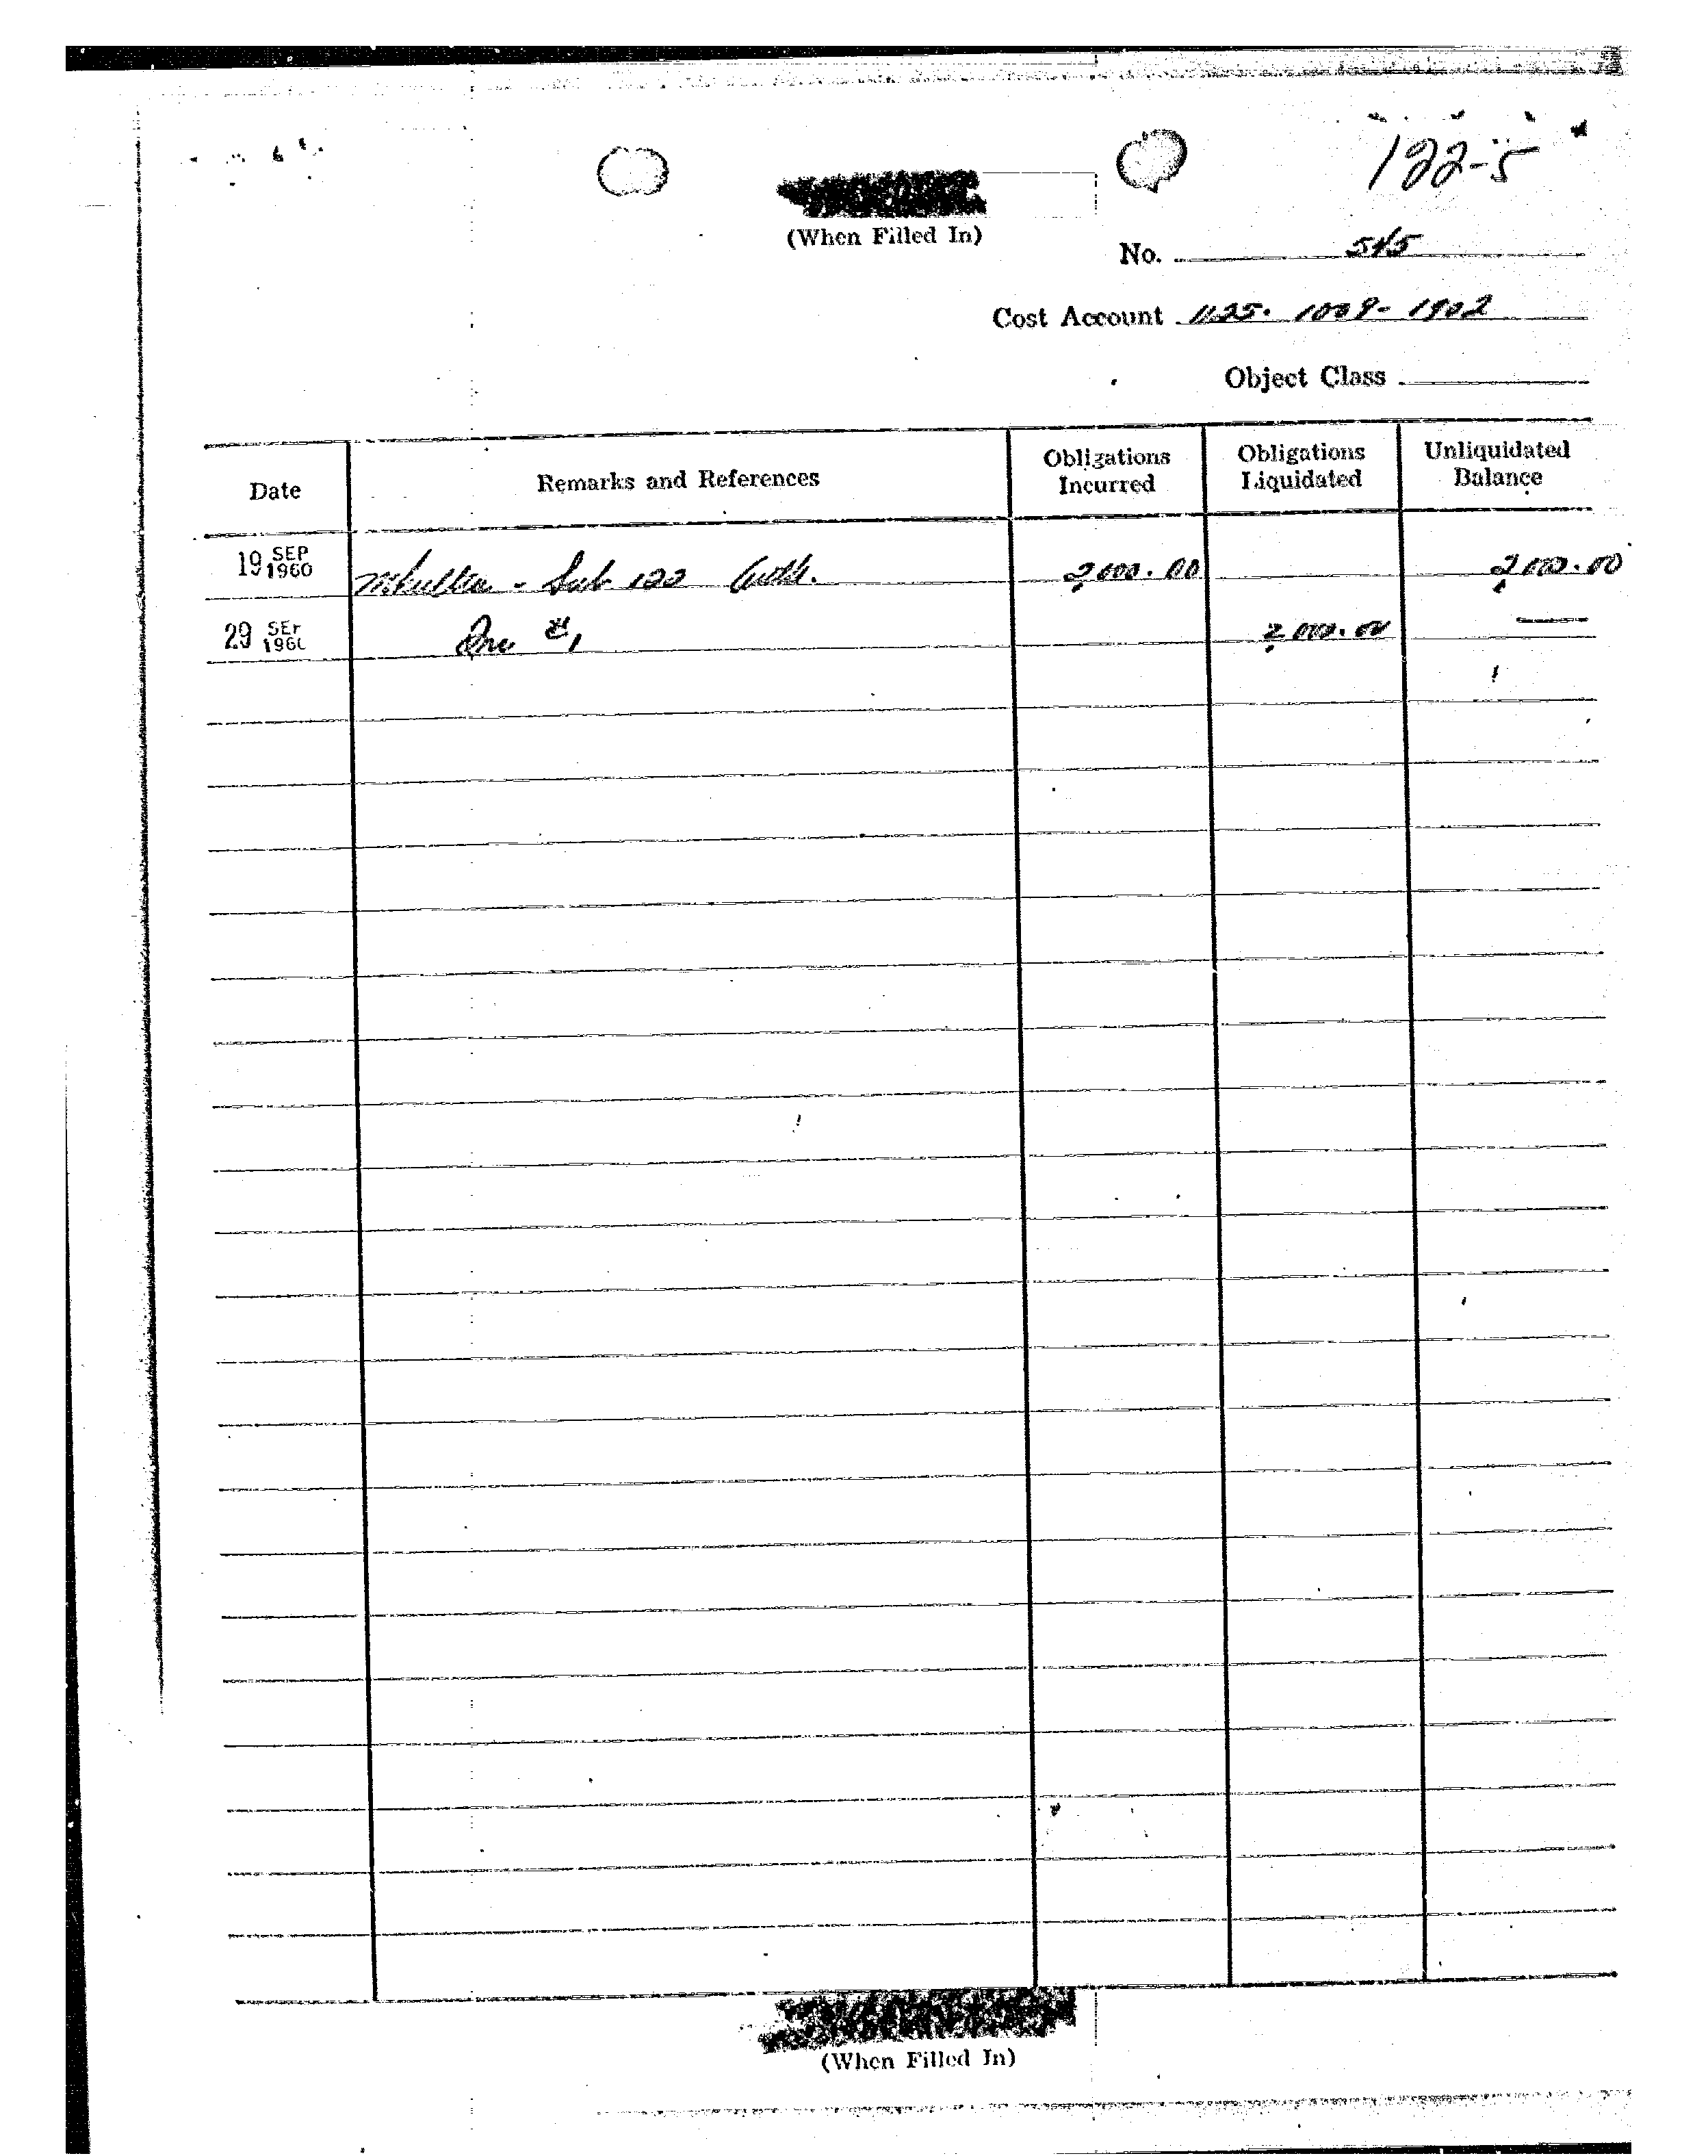 122-5
(When Filled In)
No. 545
Cost Account 1125-1009-1902
Object Class
Date Remarks and References Obligations Incurred Obligations Liquidated Unliquidated Balance
19 SEP 1960 Mkultra - Sub 122 Auth. 2,000.00 2,000.00
29 SEP 1960 Inv #1 2,000.00 —
(When Filled In)